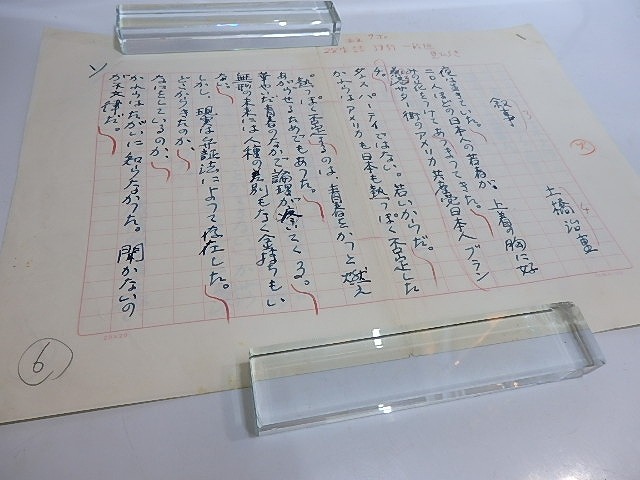 叙事
土橋治重
夜は重くていた。
二〇人ほどの日本人の若者が、上着の胸に好
みの花をつけてあつまってきた。
サター街のアメリカ共産党日本人ブラン
チ。
ダンス・パーティではない。若いからだ。
かれらはアメリカも日本も熱っぽく否定した
。
熱っぽく否定するのは、青春をかっと燃え
あがらせるためでもあった。
華やいだ青春のなかで論理が疼いてくる。
無産の未来には人種の差別もなく金持ちもい
ない。
しかし 現実は弁証法によって存在した。
どこからきたのか、
なにをしているのか、
かれらはたがいに知らなかった。聞かないの
が不文律だ。
20×20
6